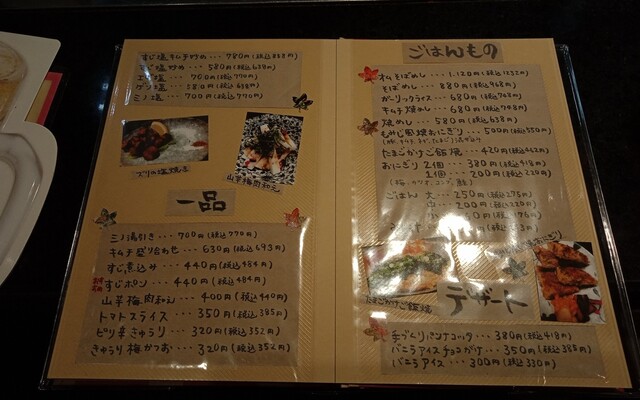 すじ塩キムチ炒め・・・780円(税込858円)
塩炒め・・・580円(税込638円)
塩・・・700円(税込770円)
ゲソ塩・・・580円(税込638円)
ミノ塩・・・700円(税込770円)
エリの塩焼き
山芋梅肉和え
一品
ミノ湯引き・・・700円(税込770円)
キムチ盛り合わせ・・・630円(税込693円)
すじ煮込み・・・440円(税込484円)
すじポン・・・440円(税込484円)
山芋梅肉和え・・・400円(税込440円)
トマトスライス・・・350円(税込385円)
ピリ辛きゅうり・・・320円(税込352円)
きゅうり梅かつお・・・320円(税込352円)
ごはんもの
オムそばめし・・・1,120円(税込1232円)
そばめし・・・880円(税込968円)
ガーリックライス・・・680円(税込748円)
キムチ焼めし・・・680円(税込748円)
焼めし・・・580円(税込638円)
もみじ風焼おにぎり・・・500円(税込550円)
たまごかけご飯焼・・・420円(税込462円)
おにぎり 2個・・・380円(税込418円)
1個・・・200円(税込220円)
ごはん 大・・・250円(税込275円)
中・・・200円(税込220円)
たまごかけご飯焼
デザート
手づくりパンナコッタ・・・380円(税込418円)
バニラアイスチョコがけ・・・350円(税込385円)
バニラアイス・・・300円(税込330円)